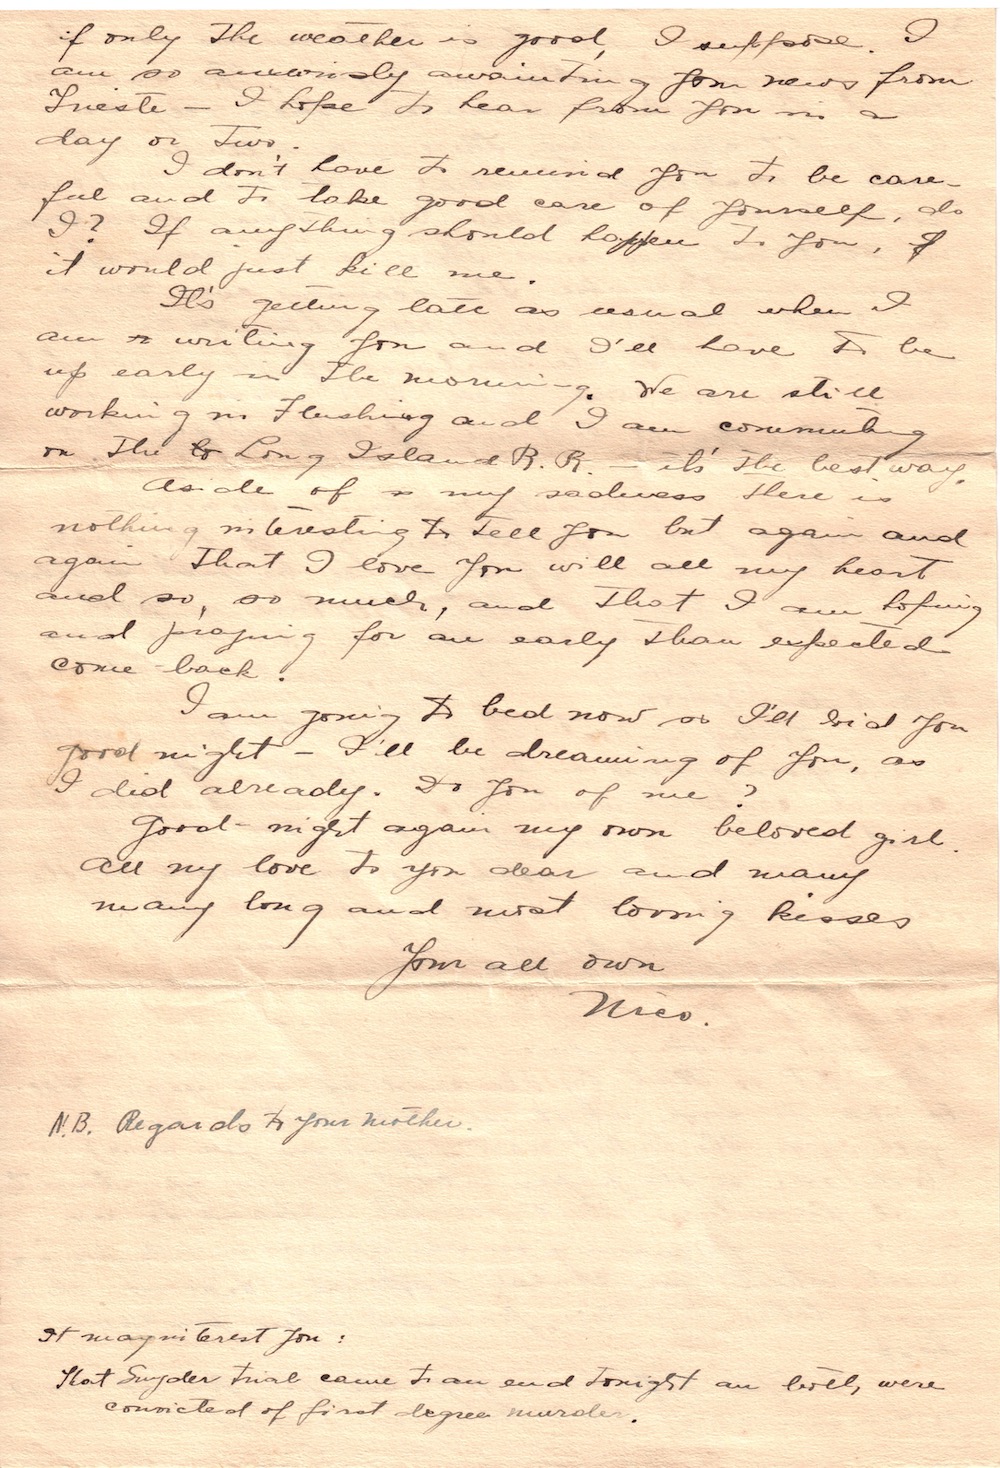 if only the weather is good, I suppose. I
am so anxiously awainting your news from
Trieste – I hope to hear from you in a
day or two.
I don't have to remind you to be care-
ful and to take good care of yourself, do
I? If anything should happen to you,
it would just kill me.
It's getting late as usual when I
am writing you and I'll have to be
up early in the morning. We are still
working in Flushing and I am commuting
on the Long Island R.R. – it's the best way.
Aside of my sadness there is
nothing interesting to tell you but again and
again that I love you will all my heart
and so, so much, and that I am hoping
and praying for an early than expected
come back.
I am going to bed now so I'll bid you
good night – I'll be dreaming of you, as
I did already. Do you of me?
Good-night again my own beloved girl.
All my love to you dear and many
many long and most loving kisses
Your all own
Nico.
N.B. Regards to your mother.
It may interest you:
That Snyder trial came to an end tonight an both were
convicted of first degree murder.